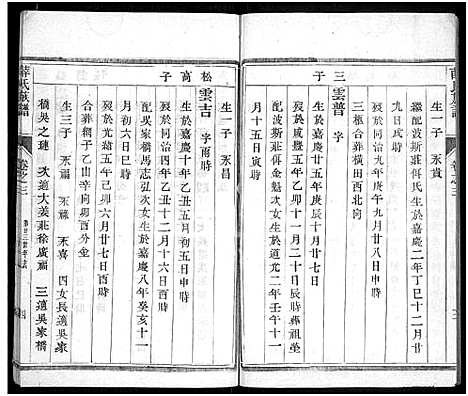 生一子 永貴
繼配波斯莊佴氏生於嘉慶二年丁巳十二月廿
九日戌時
歿於同治九年九月廿八日申時
合葬獨子橫田酉北向
三子
雲普 字
生於嘉慶十五年庚辰十月廿七日
歿於咸豐八年十一月二十日辰時葬祖塋
配波斯莊佴金魁次女生於道光二年壬午十一
月十五日寅時
生一子 永昌
松高子
雲吉 字雨時
生於嘉慶十年乙丑五月初五日申時
歿於同治四年乙丑又五月初二日酉時
配吳家橋馬志弘次女生於嘉慶八年癸亥十一
月初六日巳時
歿於光緒五年乙卯六月廿七日酉時
合葬獨子乙山辛向卯酉分金
生三子 永福 永祿 永喜 四女長適吳家
橋吳之璉 次適大姜莊徐廣福 三適吳家橋
薛氏族譜
卷之三